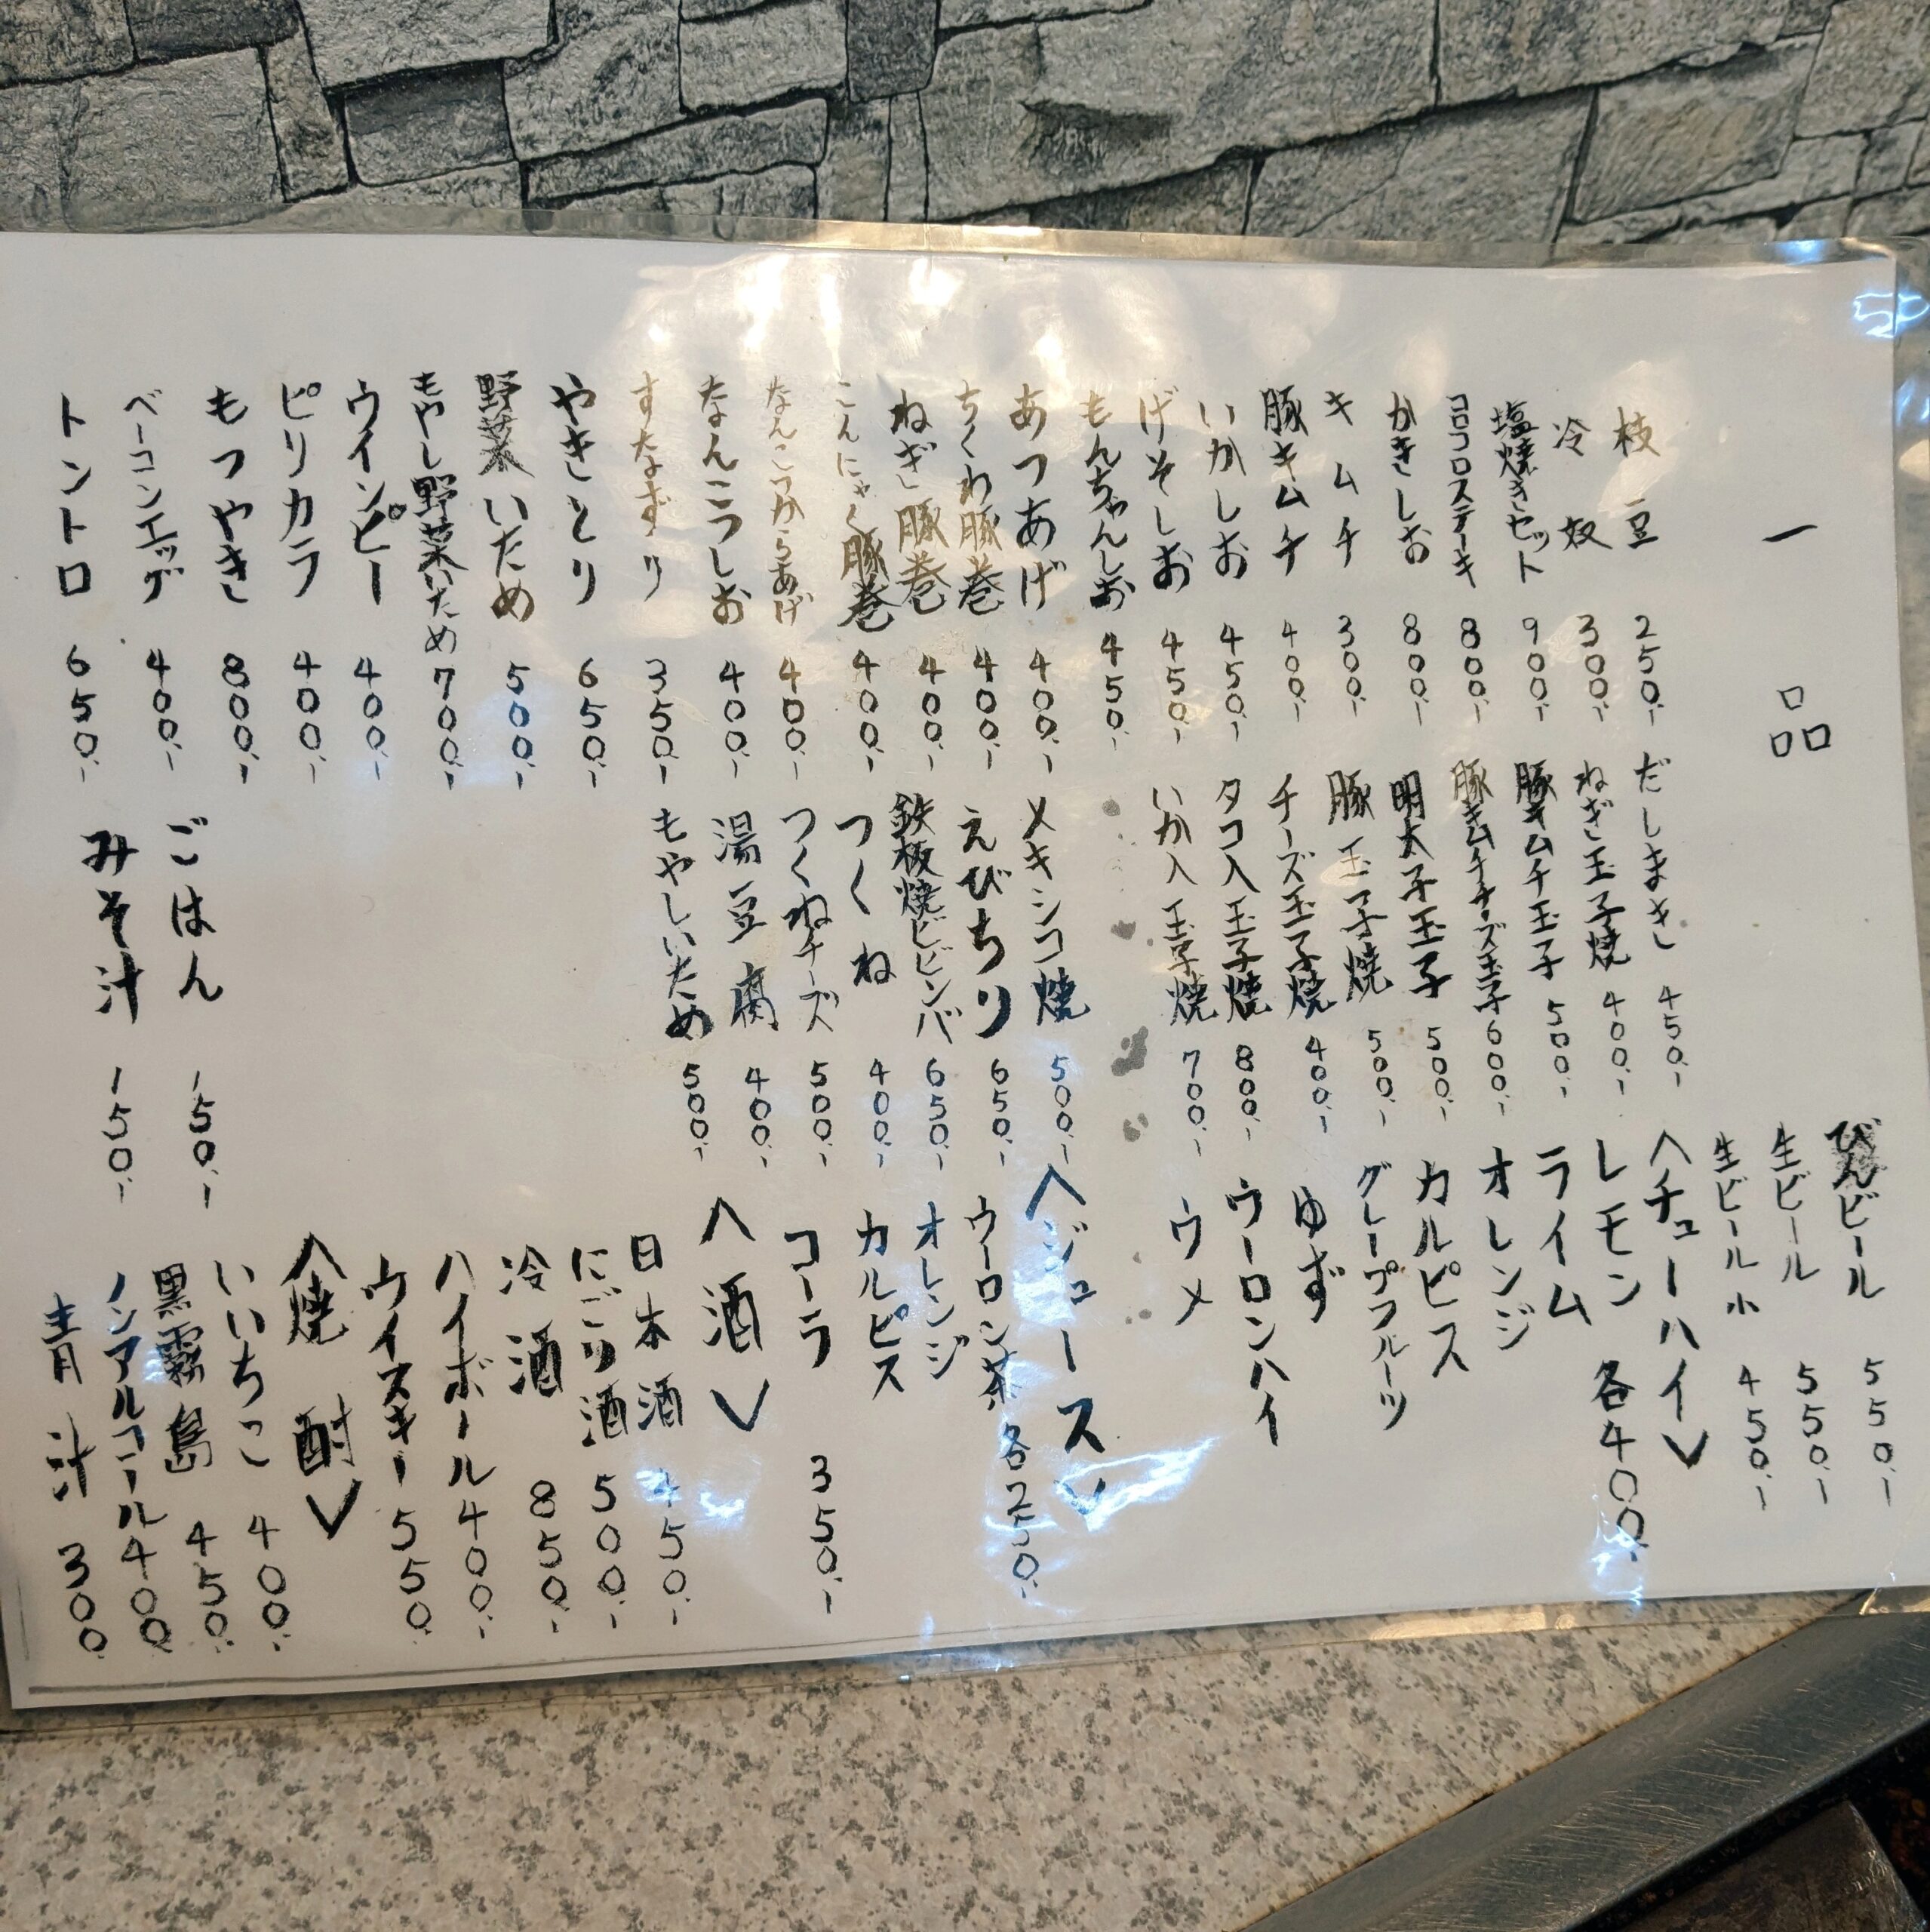 一品
枝豆 250.-
冷奴 300.-
塩焼きセット 900.-
コロコロステーキ 800.-
かきしお 800.-
キムチ 300.-
豚キムチ 400.-
いかしお 450.-
げそしお 450.-
もんちゃんしお 450.-
あつあげ 400.-
ちくわ豚巻 400.-
ねぎ豚巻 400.-
こんにゃく豚巻 400.-
なんこつからあげ 400.-
なんこつしお 400.-
すなずり 350.-
やきとり 650.-
野菜いため 500.-
もやし野菜いため 700.-
ウインピー 400.-
ピリカラ 400.-
もつやき 800.-
ベーコンエッグ 400.-
トントロ 650.-
だしまき 450.-
ねぎ玉子焼 400.-
豚キムチ玉子 500.-
豚キムチチーズ玉子 600.-
明太子玉子 500.-
豚玉子焼 500.-
チーズ玉子焼 400.-
タコ入玉子焼 800.-
いか入玉子焼 700.-
メキシコ焼 500.-
えびちり 650.-
鉄板焼ビビンバ 650.-
つくね 400.-
つくねチーズ 500.-
湯豆腐 400.-
もやしいため 500.-
ごはん 150.-
みそ汁 150.-
びんビール 550.-
生ビール 550.-
生ビール小 450.-
<チューハイ>
レモン 各400.-
ライム
オレンジ
カルピス
グレープフルーツ
ゆず
ウーロンハイ
ウメ
<ジュース>
ウーロン茶 各250.-
オレンジ
カルピス
コーラ 350.-
<酒>
日本酒 450.-
にごり酒 500.-
冷酒 850.-
ハイボール 400.-
ウイスキー 550.-
<焼酎>
いいちこ 400.-
黒霧島 450.-
ノンアルコール 400.-
青汁 300.-